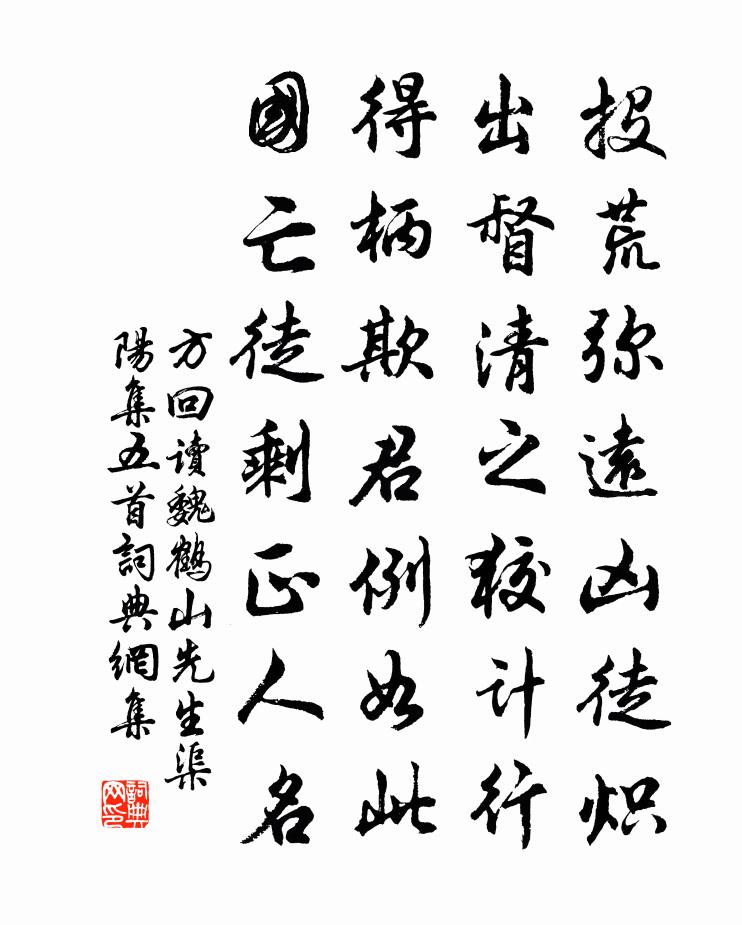 投荒弥遠凶徒炽
出督清之狡计行
得柄欺君例如此
國亡徒剩正人名
方回读魏鹤山先生渠
陽集五首詞典網集
詞典网印